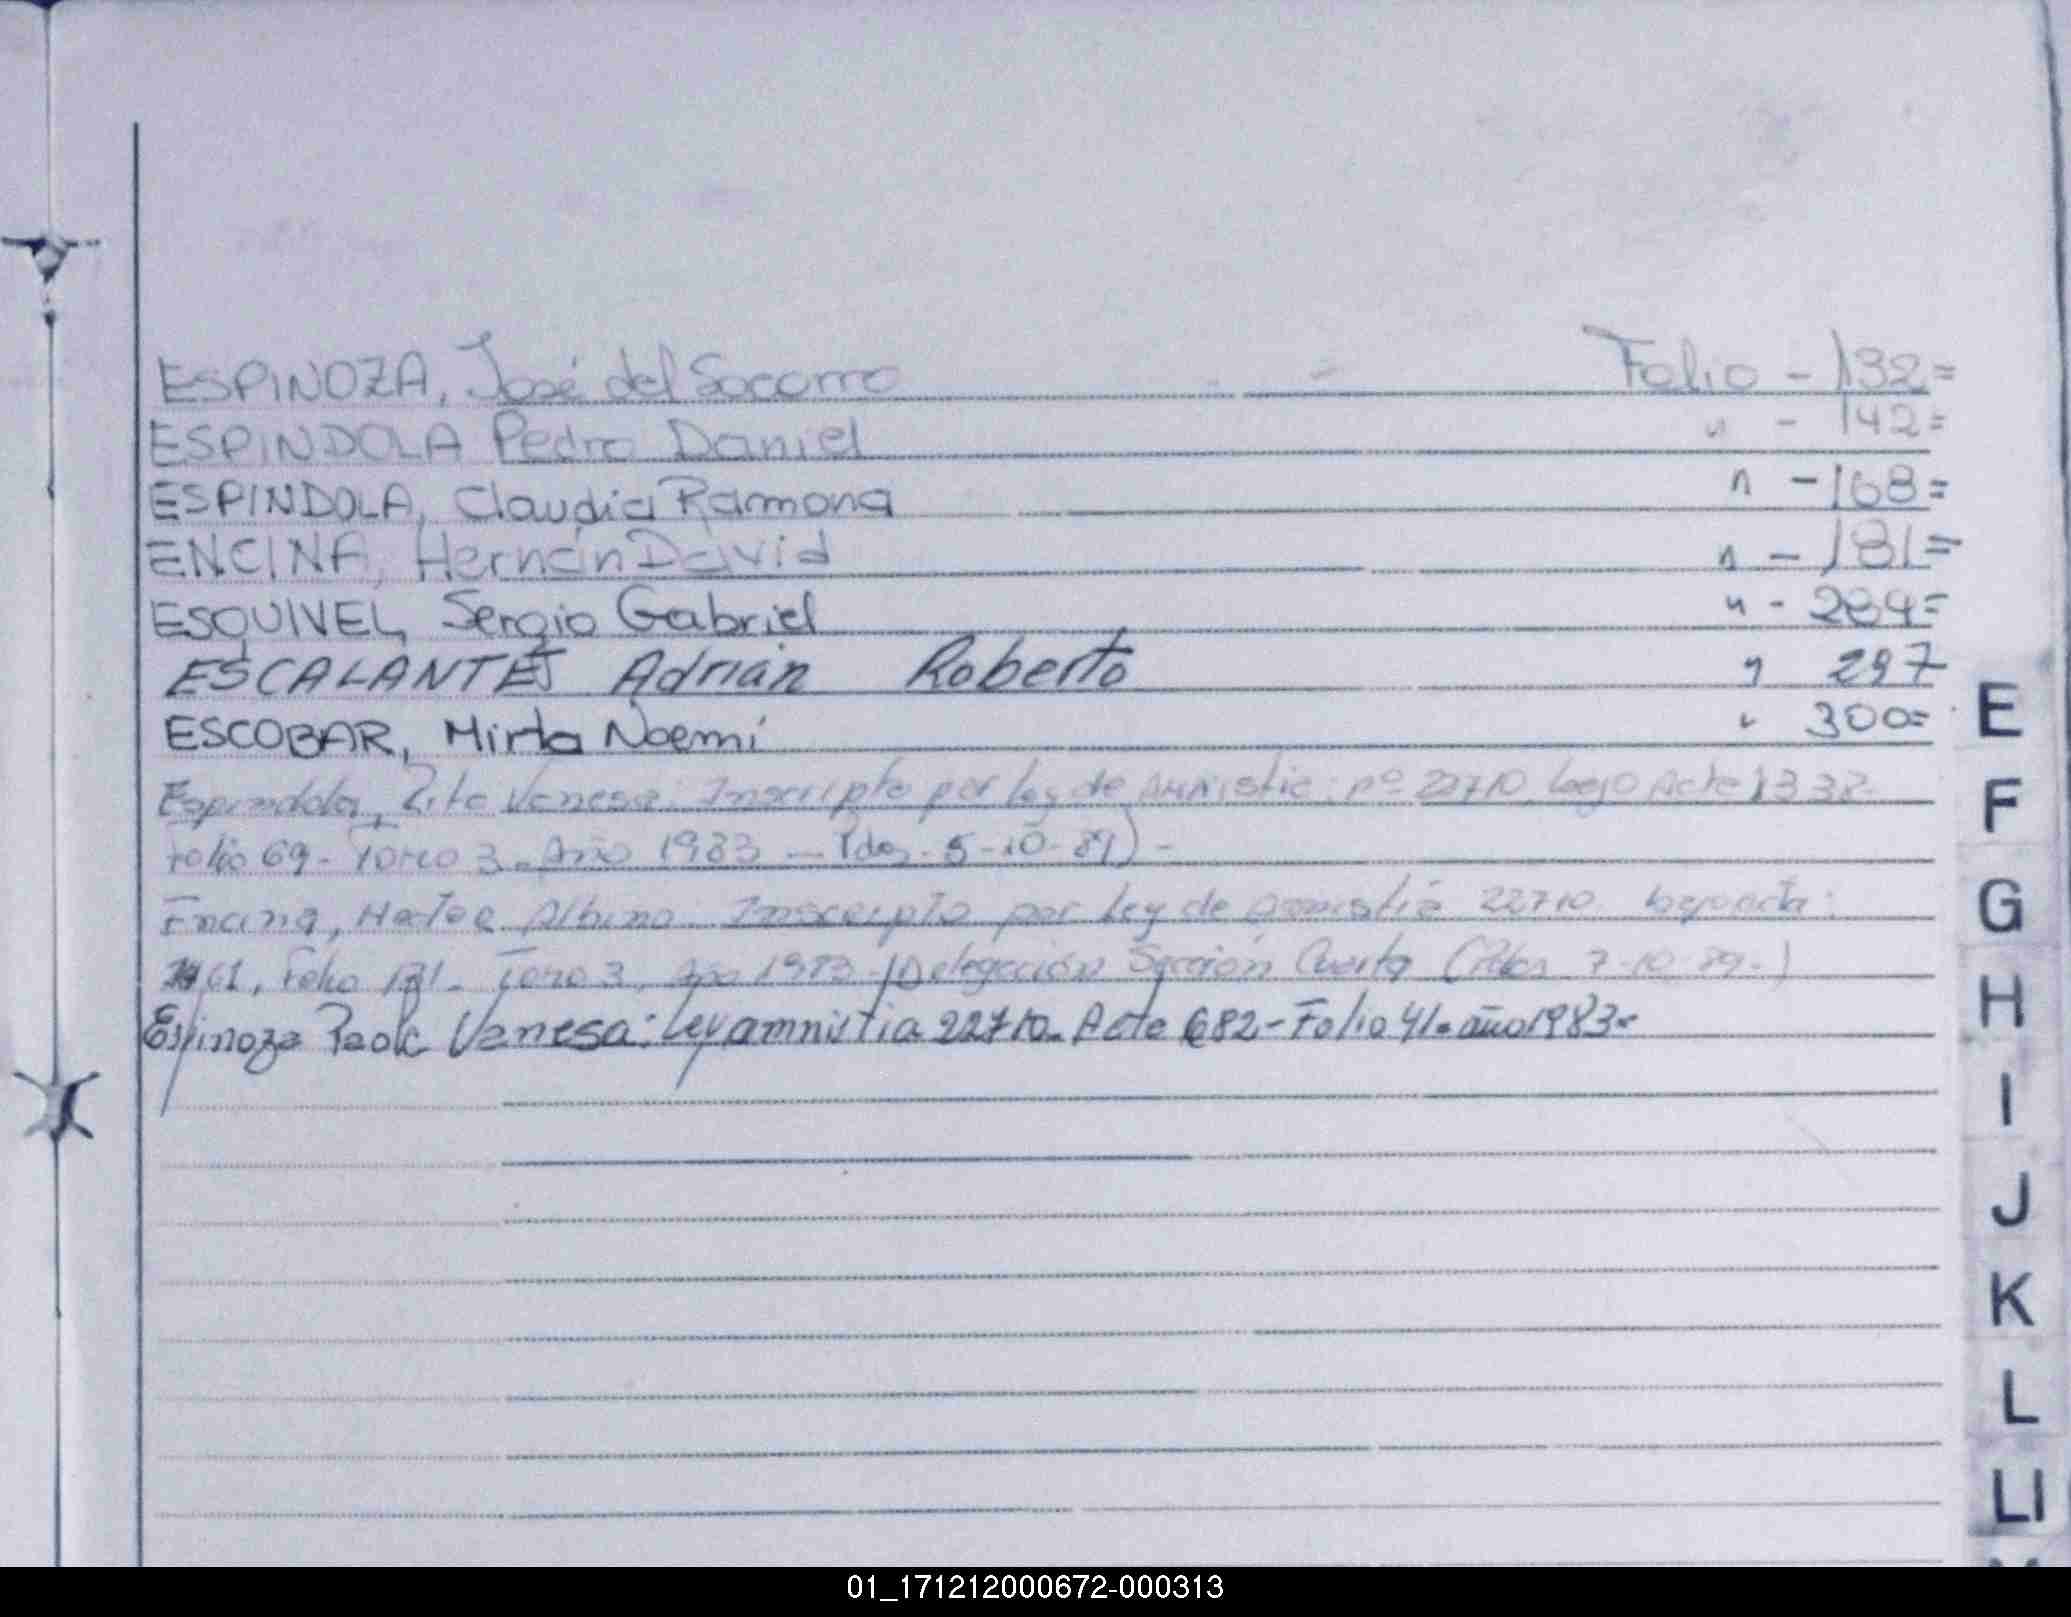 ESPINOZA, José del Socorro - Folio - 132=
ESPINDOLA Pedro Daniel " - 142=
ESPINDOLA, Claudia Ramona " - 168=
ENCINA, Hernán David " - 181=
ESQUIVEL, Sergio Gabriel " - 289=
ESCALANTE, Adrián Roberto " 297
ESCOBAR, Mirta Noemí " 300=
Espindola, Rita Vanesa: Inscripta por ley de Amnistia: nº 22710. bajo Acta 1338-
Folio 69- Tomo 3- Año 1983 - 5-10-89) -
Encina, Albino: Inscripto por Ley de amnistia 22710. bajo acta:
61, Folio 131- Tomo 3, Año 1983-(Delegación Sección Cuarta 7-10-89-)
Espinoza Paola Vanesa: Ley amnistia 22710. Acta 682- Folio 41- año 1983-
E
F
G
H
I
J
K
L
Ll
01_171212000672-000313